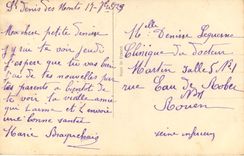 St Denis des Monts 17-7bre 1929
Ma chère petite Denise
J'y rai te voir jeudi
J'espère que tu vas bien
j'ai de tes nouvelles par
tes parents a bientôt de
ta vieille amie
qui t'aime et t'envoie
une bonne santé
Marie
Melle Denise
Clinique du docteur
Martin Salle 5 No 1
rue Eau de Robec
Rouen
Seine inférieure